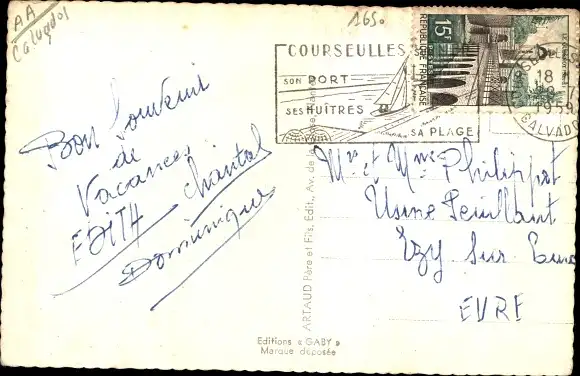 AA
Calvados
1650
COURSEULLES
SON PORT
SES HUÎTRES
SA PLAGE
15F
RÉPUBLIQUE FRANÇAISE
18
1959
CALVADOS
Bon Souvenir
de
Vacances
EDITH Chantal
Dominique
Mr et Mme Philippot
Usine Feuillant
Ezy Sur Eure
EVRE
ARTAUD Père et Fils, Édit., Av. de la
Editions « GABY »
Marque déposée